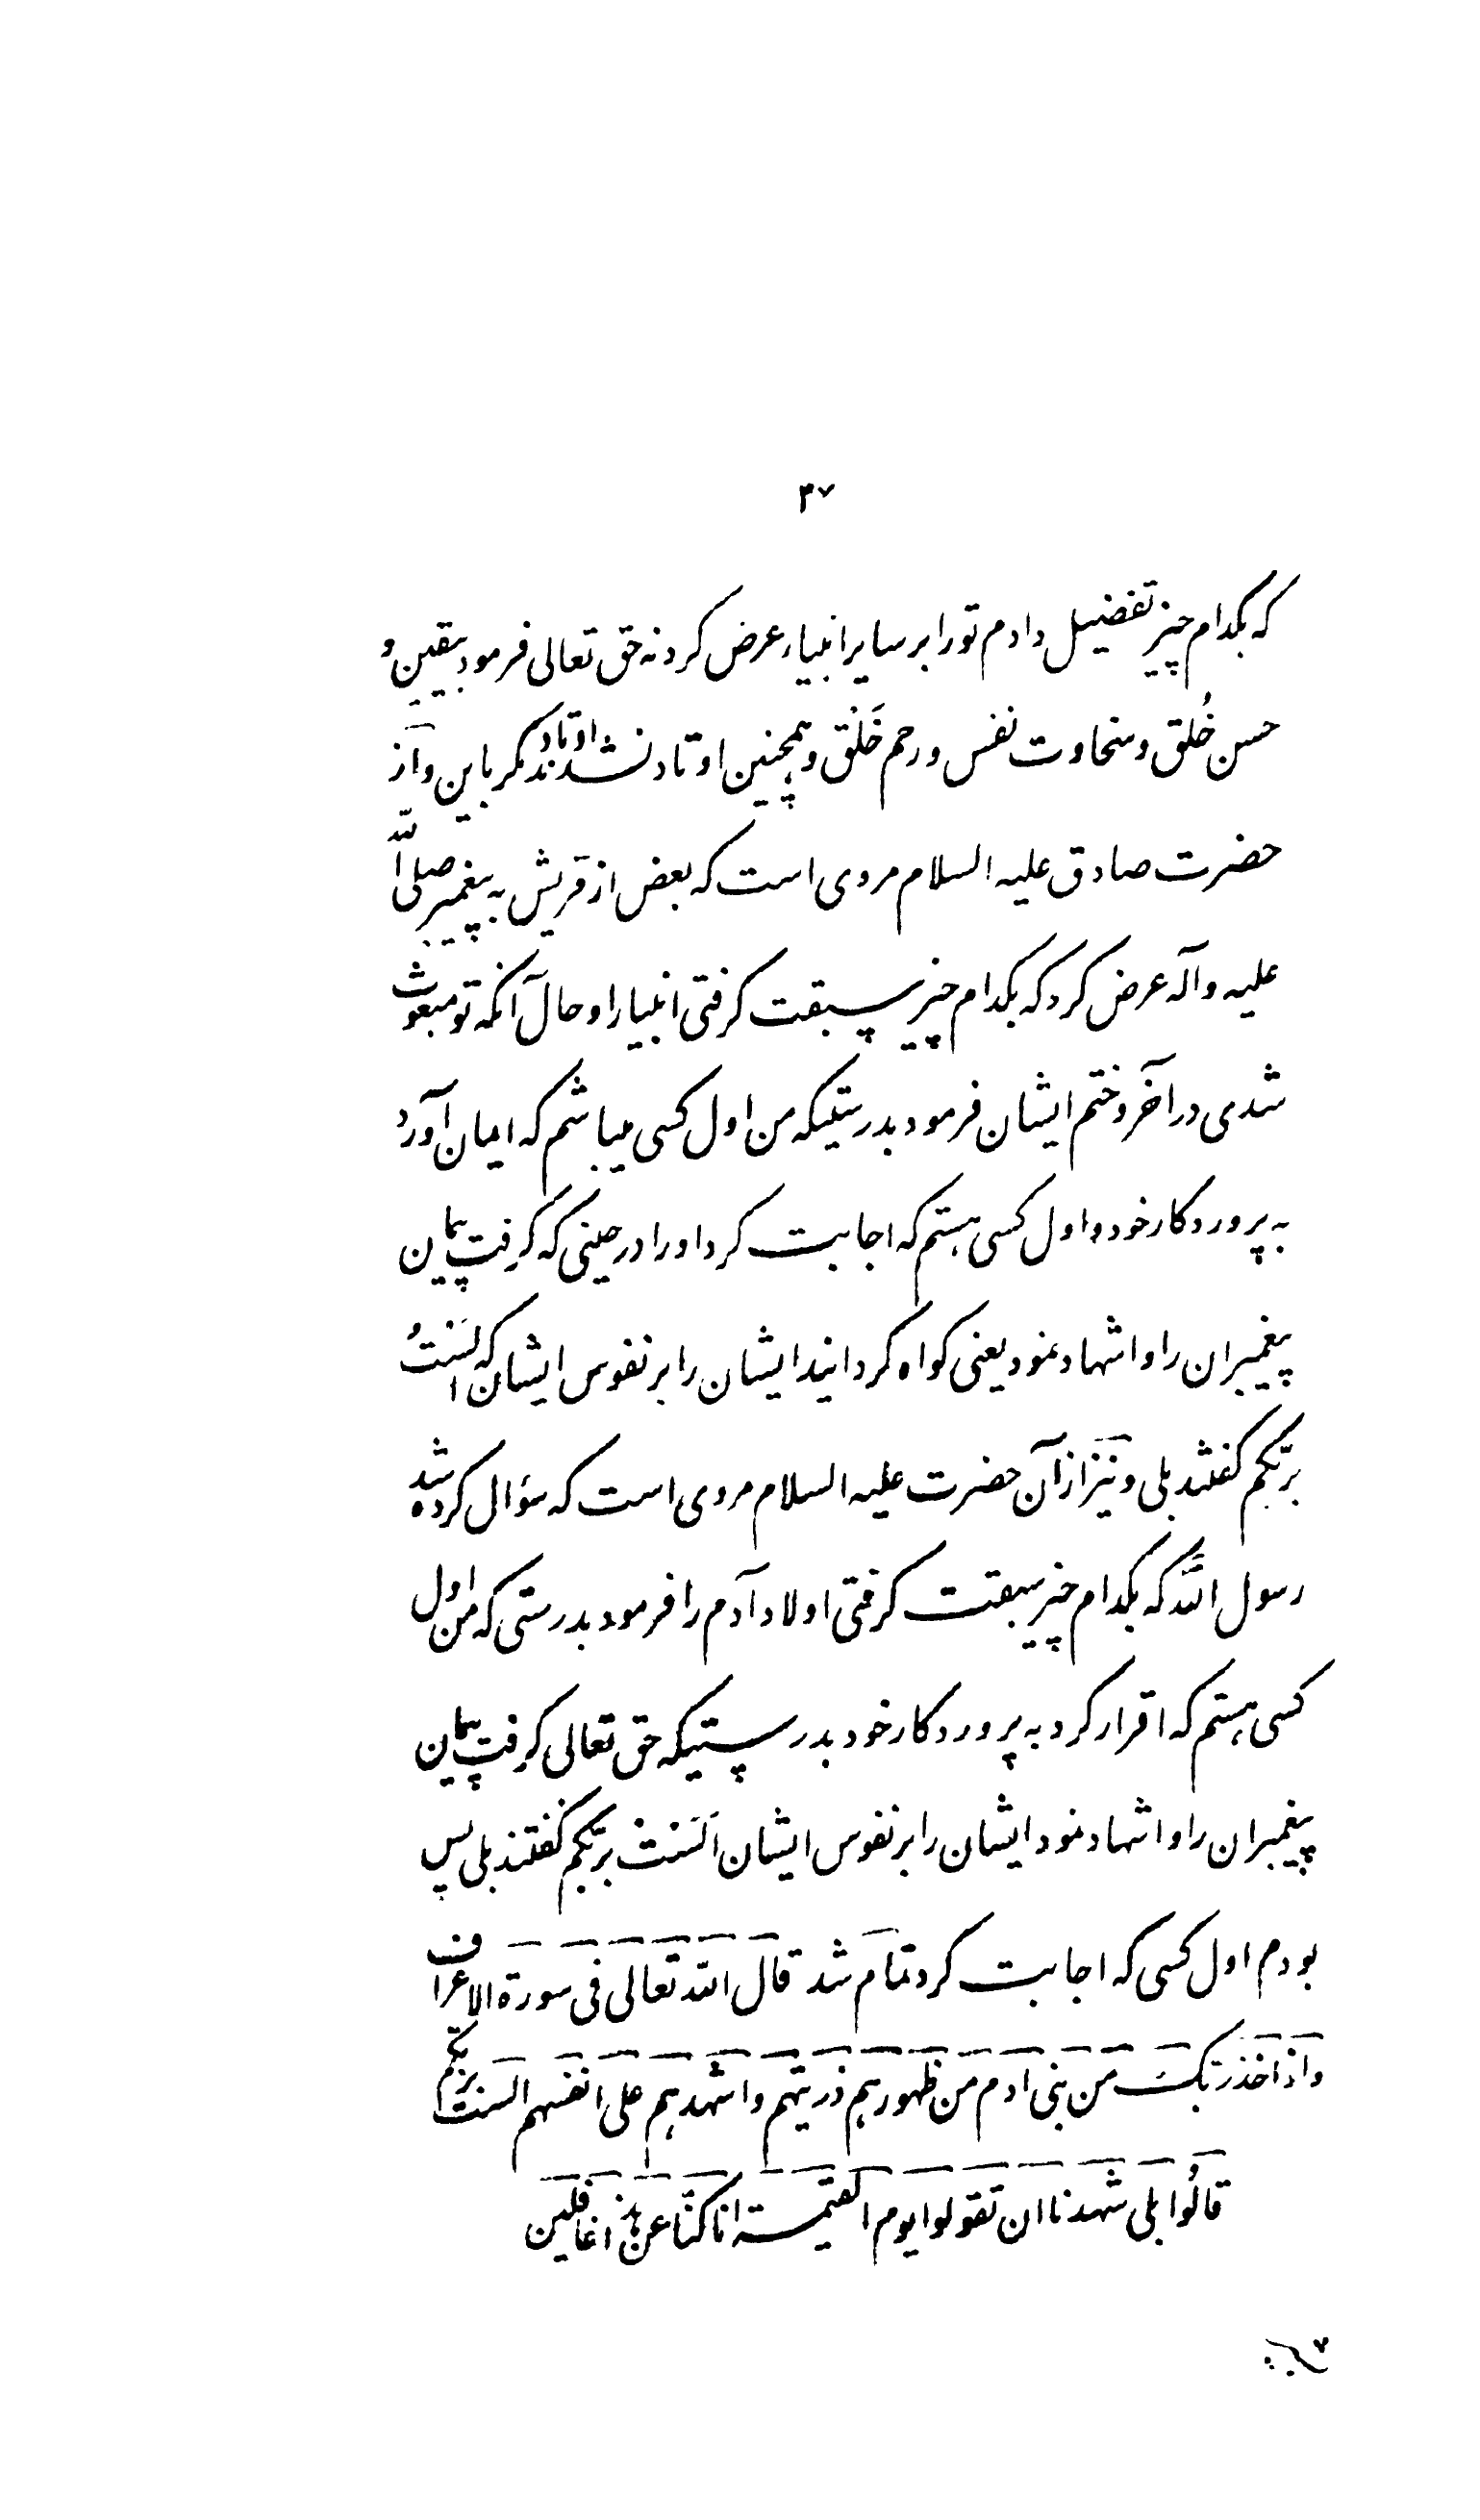 ۳۷
که بکدام چیز تفضیل دادم تو را بر سایر انبیاء عرض کرد نه حق تعالی فرمود بیقین و
حسن خُلق و سخاوت نفس و رحم خَلق و همچنین اوتاد نشدند اوتاد مکر باین و از
حضرت صادق علیه السلام مروی است که بعض از قریش به پیغمبر صلی الله
علیه و آله عرض کرد که بکدام چیز سبقت کرفتی انبیا را و حال آنکه تو مبعوث
شدمی در آخر و ختم ایشان فرمود بدرستیکه من اول کسی میباشم که ایمان آورد
به پروردکار خود و اول کسی هستم که اجابت کرد او را در حینی که کرفت پیمان
پیغمبران را و اشهاد نمود یعنی کواه کردانید ایشان را بر نفوس ایشان که الَستُ
بربّکم کفتند بلی و نیز از آن حضرت علیه السلام مروی است که سؤال کرده شد
رسول الله که بکدام چیز سبقت کرفتی اولاد آدم را فرمود بدرستی که من اول
کسی هستم که اقرار کرد به پروردکار خود بدرستیکه حق تعالی کرفت پیمان
پیغمبران را و اشهاد نمود ایشان را بر نفوس ایشان اَلَست بربّکم کفتند بلی پس
بودم اول کسی که اجابت کرد تمام شد قال الله تعالی فی سورة الاعراف
و اذ اخذ ربک من بنی ادم من ظهورهم ذریتهم و اشهدهم علی انفسهم الست بربّکم
قالُوا بلی شهدنا ان تقولوا یوم القیمة انا کنا عن هذا غافلین